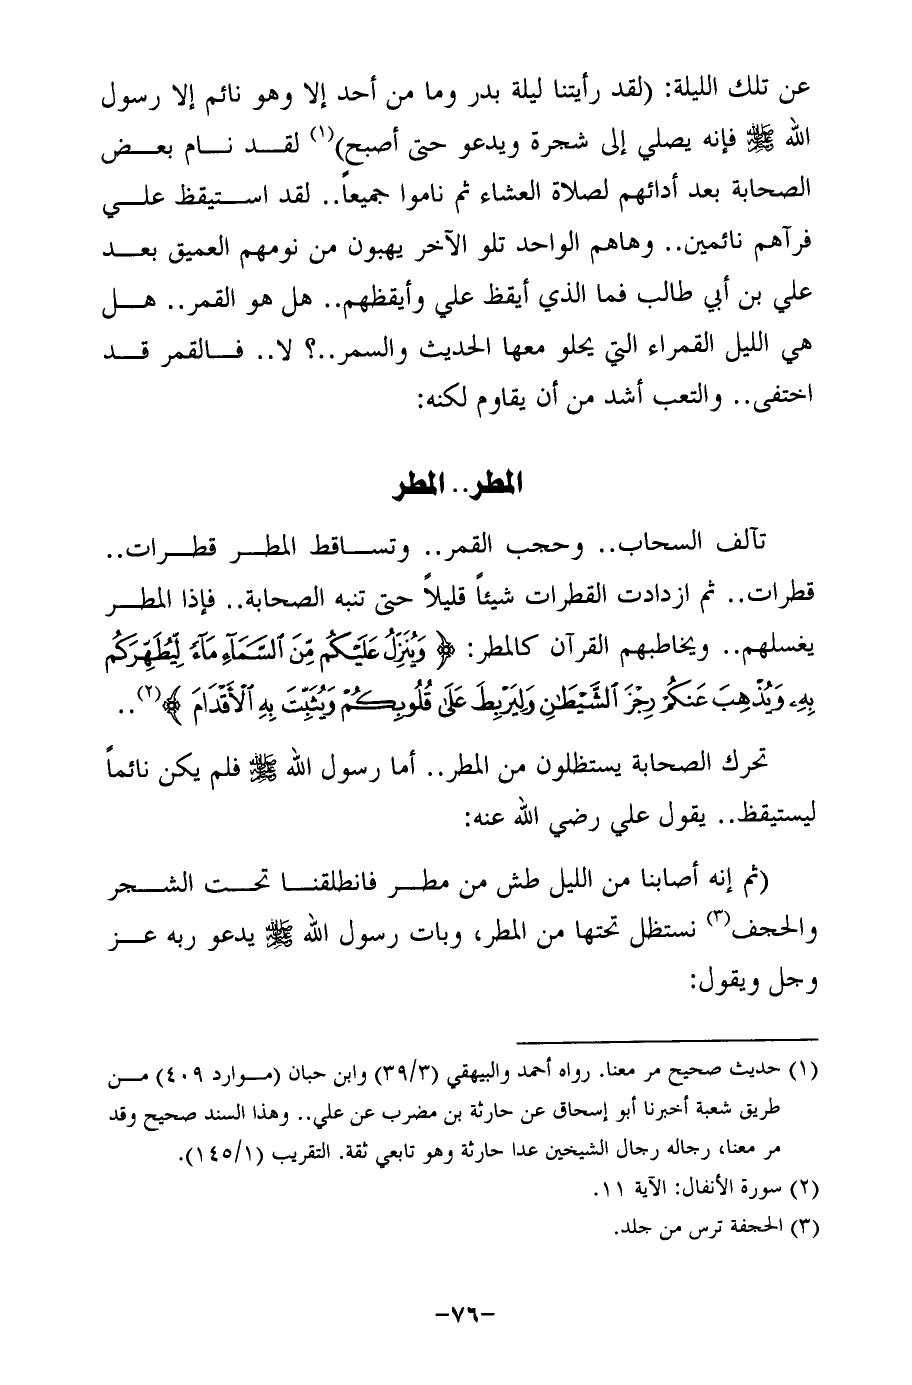 عن تلك الليلة: (لقد رأيتنا ليلة بدر وما من أحد إلا وهو نائم إلا رسول
الله ﷺ فإنه يصلي إلى شجرة ويدعو حتى أصبح)(١) لقد نام بعض
الصحابة بعد أدائهم لصلاة العشاء ثم ناموا جميعاً.. لقد استيقظ علي
فرآهم نائمين.. وهاهم الواحد تلو الآخر يهبون من نومهم العميق بعد
علي بن أبي طالب فما الذي أيقظ علي وأيقظهم.. هل هو القمر.. هل
هي الليل القمراء التي يحلو معها الحديث والسمر..؟ لا.. فالقمر قد
اختفى.. والتعب أشد من أن يقاوم لكنه:
المطر.. المطر
تآلف السحاب.. وحجب القمر.. وتساقط المطر قطرات..
قطرات.. ثم ازدادت القطرات شيئاً قليلاً حتى تنبه الصحابة.. فإذا المطر
يغسلهم.. ويخاطبهم القرآن كالمطر: ﴿ وَيُنَزِّلُ عَلَيْكُم مِّنَ ٱلسَّمَآءِ مَآءً لِّيُطَهِّرَكُم
بِهِۦ وَيُذْهِبَ عَنكُمْ رِجْزَ ٱلشَّيْطَٰنِ وَلِيَرْبِطَ عَلَىٰ قُلُوبِكُمْ وَيُثَبِّتَ بِهِ ٱلْأَقْدَامَ ﴾(٢)..
تحرك الصحابة يستظلون من المطر.. أما رسول الله ﷺ فلم يكن نائماً
ليستيقظ.. يقول علي رضي الله عنه:
(ثم إنه أصابنا من الليل طش من مطر فانطلقنا تحت الشجر
والحجف(٣) نستظل تحتها من المطر، وبات رسول الله ﷺ يدعو ربه عز
وجل ويقول:
(١) حديث صحيح مر معنا. رواه أحمد والبيهقي (٣٩/٣) وابن حبان (موارد ٤٠٩) من
طريق شعبة أخبرنا أبو إسحاق عن حارثة بن مضرب عن علي.. وهذا السند صحيح وقد
مر معنا، رجاله رجال الشيخين عدا حارثة وهو تابعي ثقة. التقريب (١٤٥/١).
(٢) سورة الأنفال: الآية ١١.
(٣) الحجفة ترس من جلد.
-٧٦-